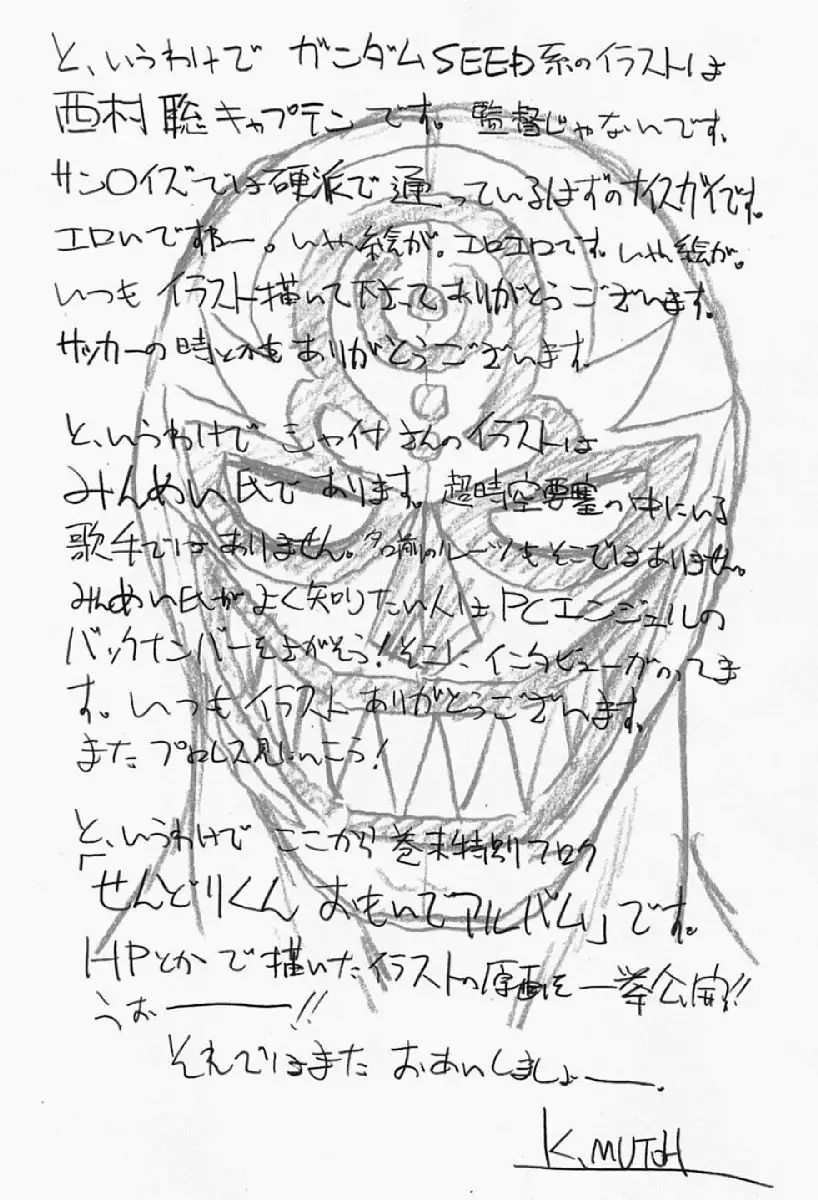 と、いうわけで ガンダムSEED系のイラストは
西村聡キャプテンです。監督じゃないです。
サン〇イズでは硬派で通っているはずのナイスガイです。
エロいですねー。いや絵が。エロエロです。いや絵が。
いつもイラスト描いて下さってありがとうございます。
サッカーの時とかもありがとうございます。
と、いうわけで シャイナさんのイラストは
みんめい氏であります。超時空要塞の中にいる
歌手ではありません。名前のルーツもそこではありません。
みんめい氏がよく知りたい人はPCエンジェルの
バックナンバーをさがそう!そこにインタビューがのってま
す。いつもイラストありがとうございます。
またプロレス見にいこう!
と、いうわけで ここから巻末特別フロク
「せんどりくん おもいでアルバム」です。
HPとかで描いたイラストの原画を一挙公開!!
うおー!!
それではまた おあいしましょー。
K.MUTOH